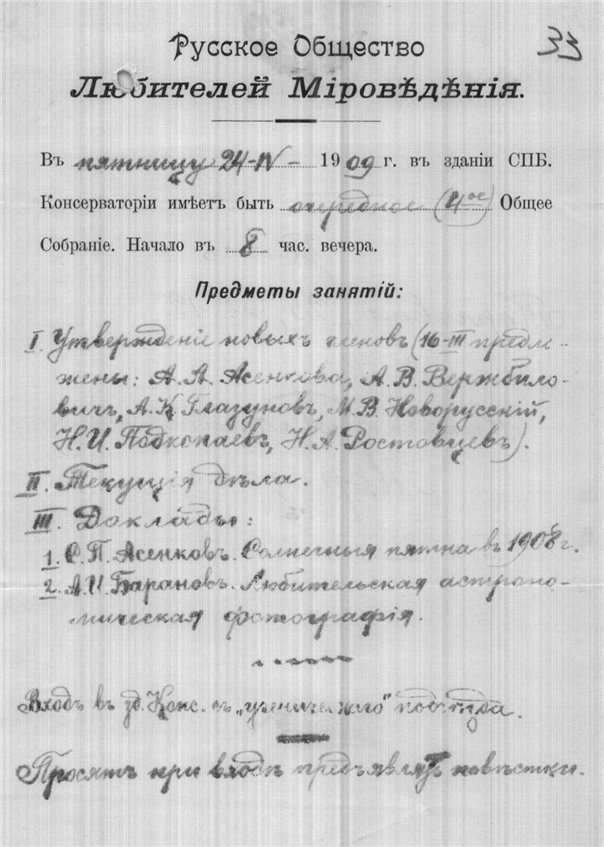 33
Русское Общество
Любителей Міровѣдѣнія.
Въ пятницу 24-IV- 1909 г. въ зданіи СПБ.
Консерваторіи имѣетъ быть очередное (4ое) Общее
Собраніе. Начало въ 8 час. вечера.
Предметы занятій:
I. Утвержденіе новыхъ членовъ (16-III предло-
жены: А. А. Асенкова, А. В. Вержбило-
вичъ, А. К. Глазуновъ, М. В. Новорусскій,
Н. И. Подкопаевъ, Н. А. Ростовцевъ).
II. Текущія дѣла.
III. Доклады:
1. С. П. Асенковъ. Солнечныя пятна въ 1908 г.
2. А. И. Барановъ. Любительская астроно-
мическая фотографія.
Входъ въ зд. Конс. съ „ученическаго" подъѣзда.
Просятъ при входѣ предъявлять повѣстки.